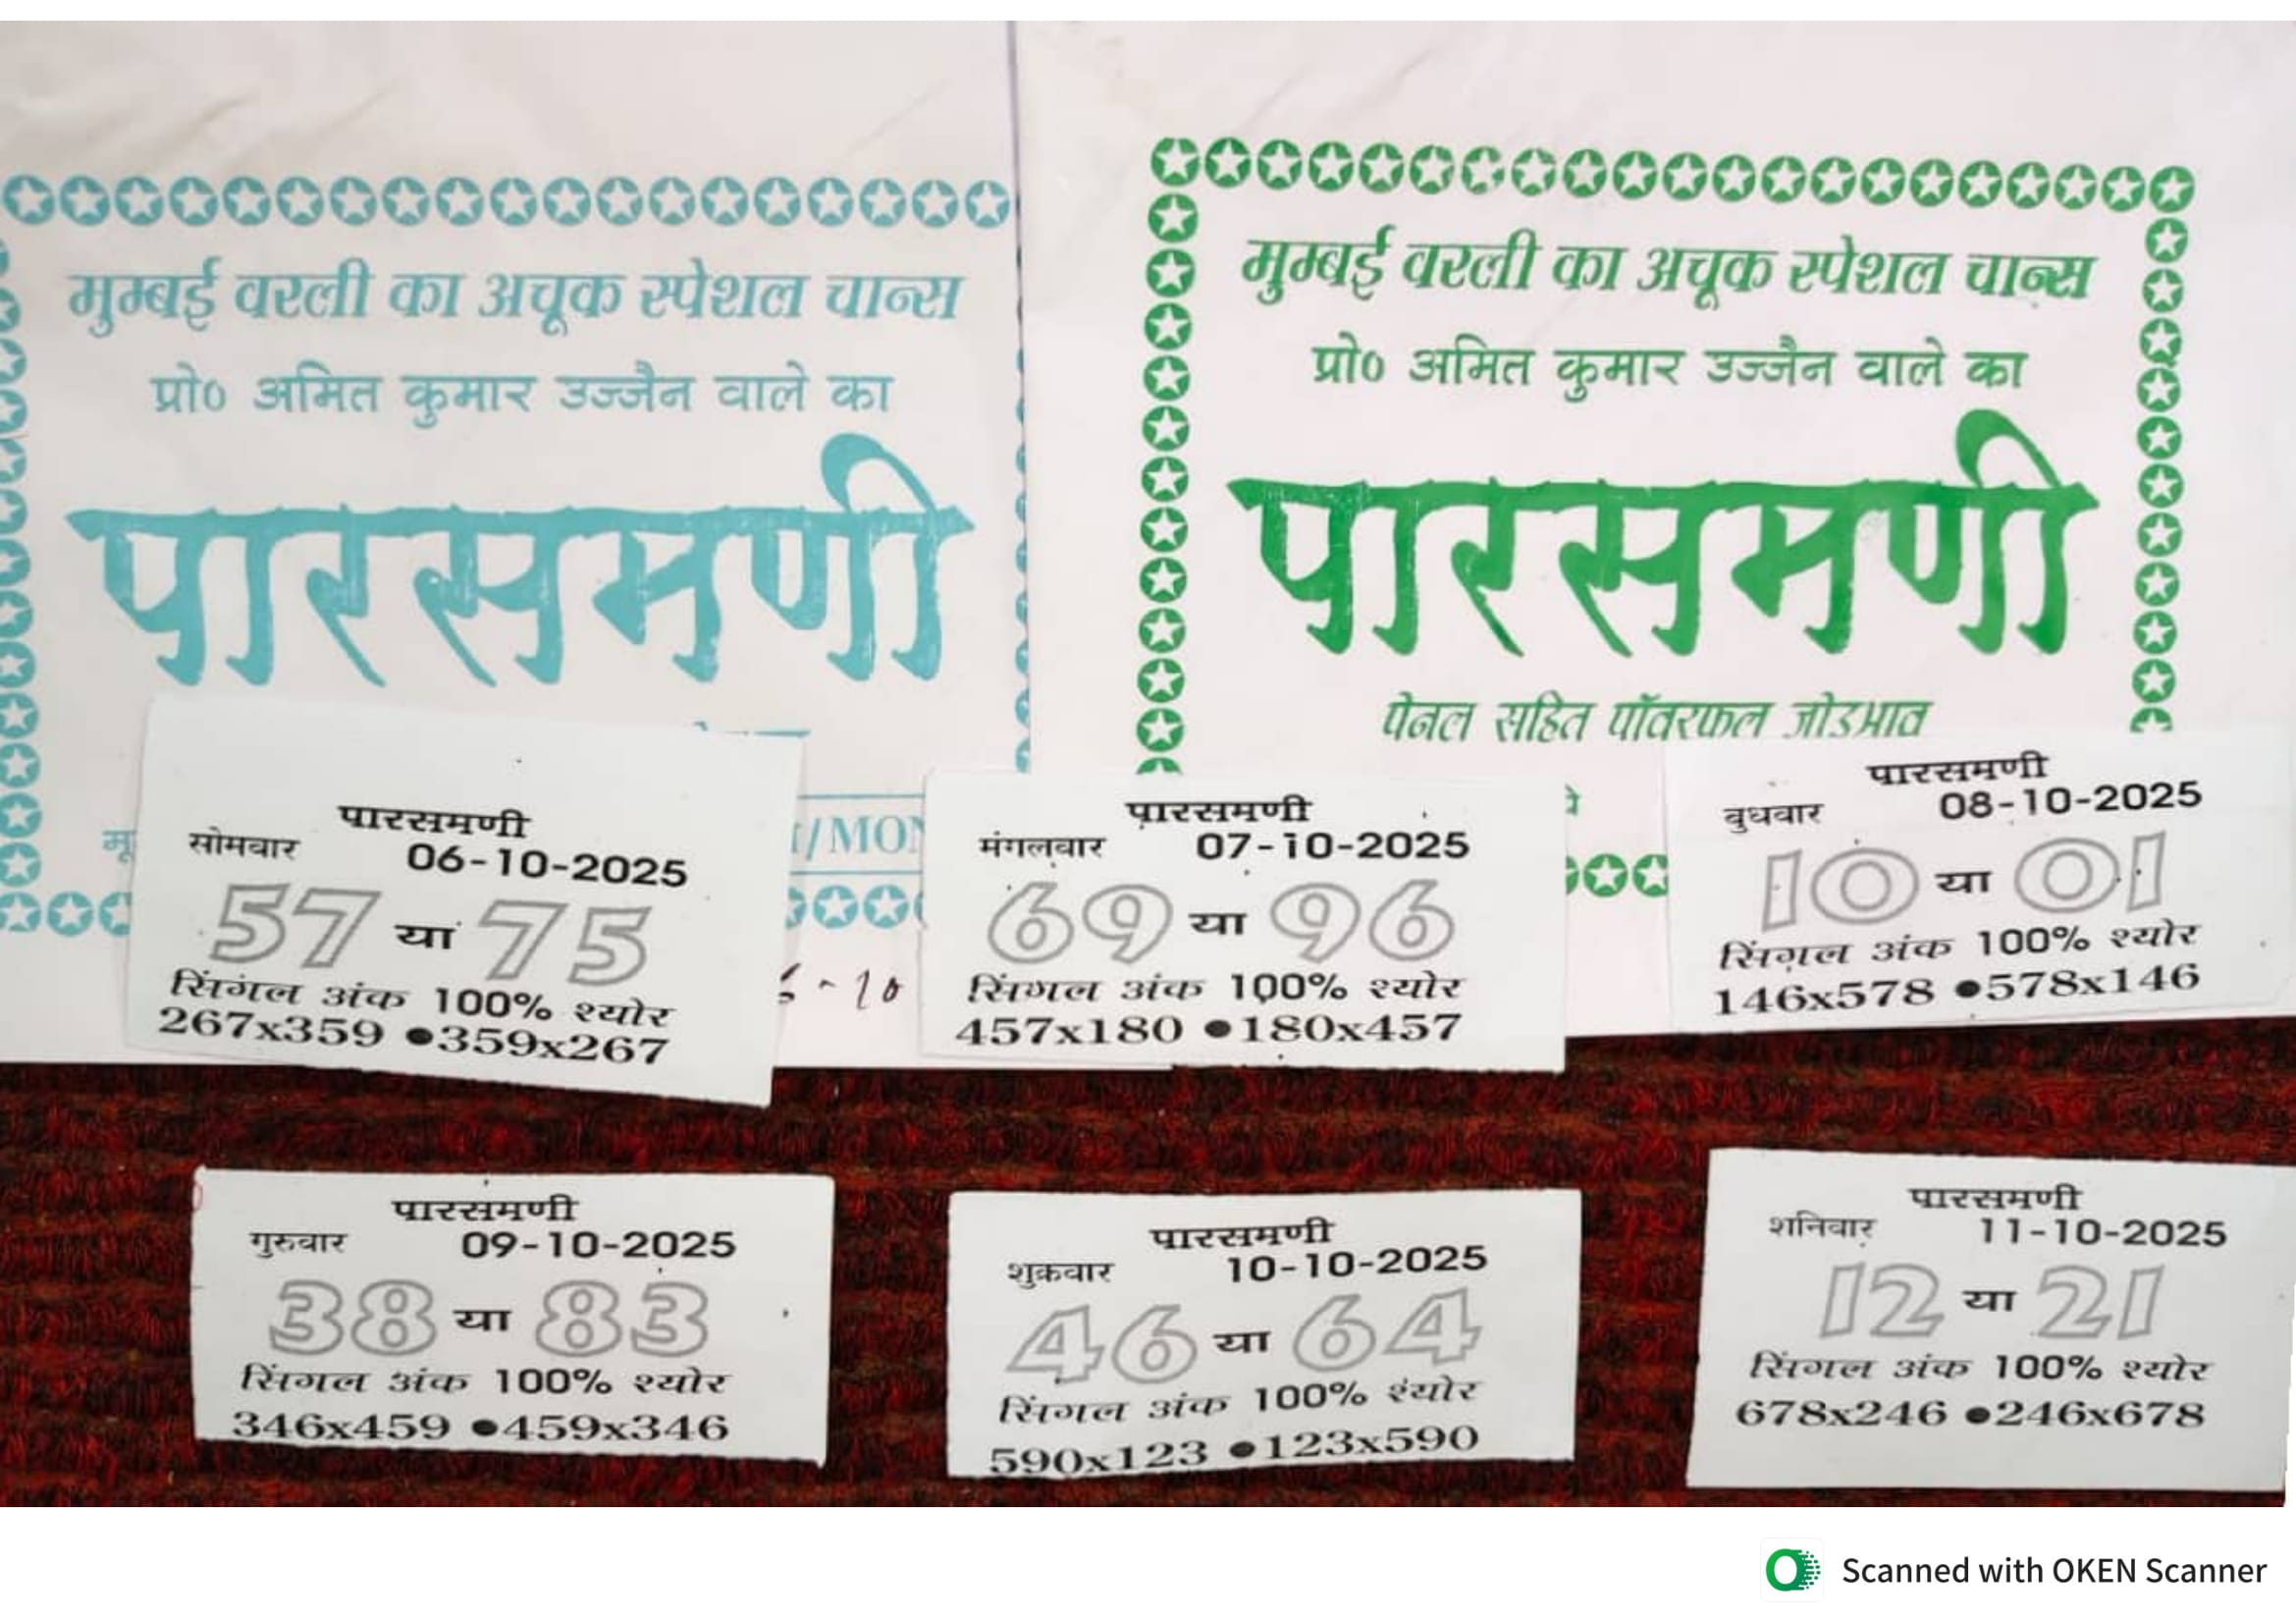 मुम्बई वरली का अचूक स्पेशल चान्स
प्रो० अमित कुमार उज्जैन वाले का
पारसमणी
/MON
6-10
मुम्बई वरली का अचूक स्पेशल चान्स
प्रो० अमित कुमार उज्जैन वाले का
पारसमणी
पेनल सहित पॉवरफल जोडभाव
पारसमणी
सोमवार 06-10-2025
57 या 75
सिंगल अंक 100% श्योर
267x359 ●359x267
पारसमणी
मंगलवार 07-10-2025
69 या 96
सिंगल अंक 100% श्योर
457x180 ●180x457
पारसमणी
बुधवार 08-10-2025
10 या 01
सिंगल अंक 100% श्योर
146x578 ●578x146
पारसमणी
गुरुवार 09-10-2025
38 या 83
सिंगल अंक 100% श्योर
346x459 ●459x346
पारसमणी
शुक्रवार 10-10-2025
46 या 64
सिंगल अंक 100% श्योर
590x123 ●123x590
पारसमणी
शनिवार 11-10-2025
12 या 21
सिंगल अंक 100% श्योर
678x246 ●246x678
Scanned with OKEN Scanner